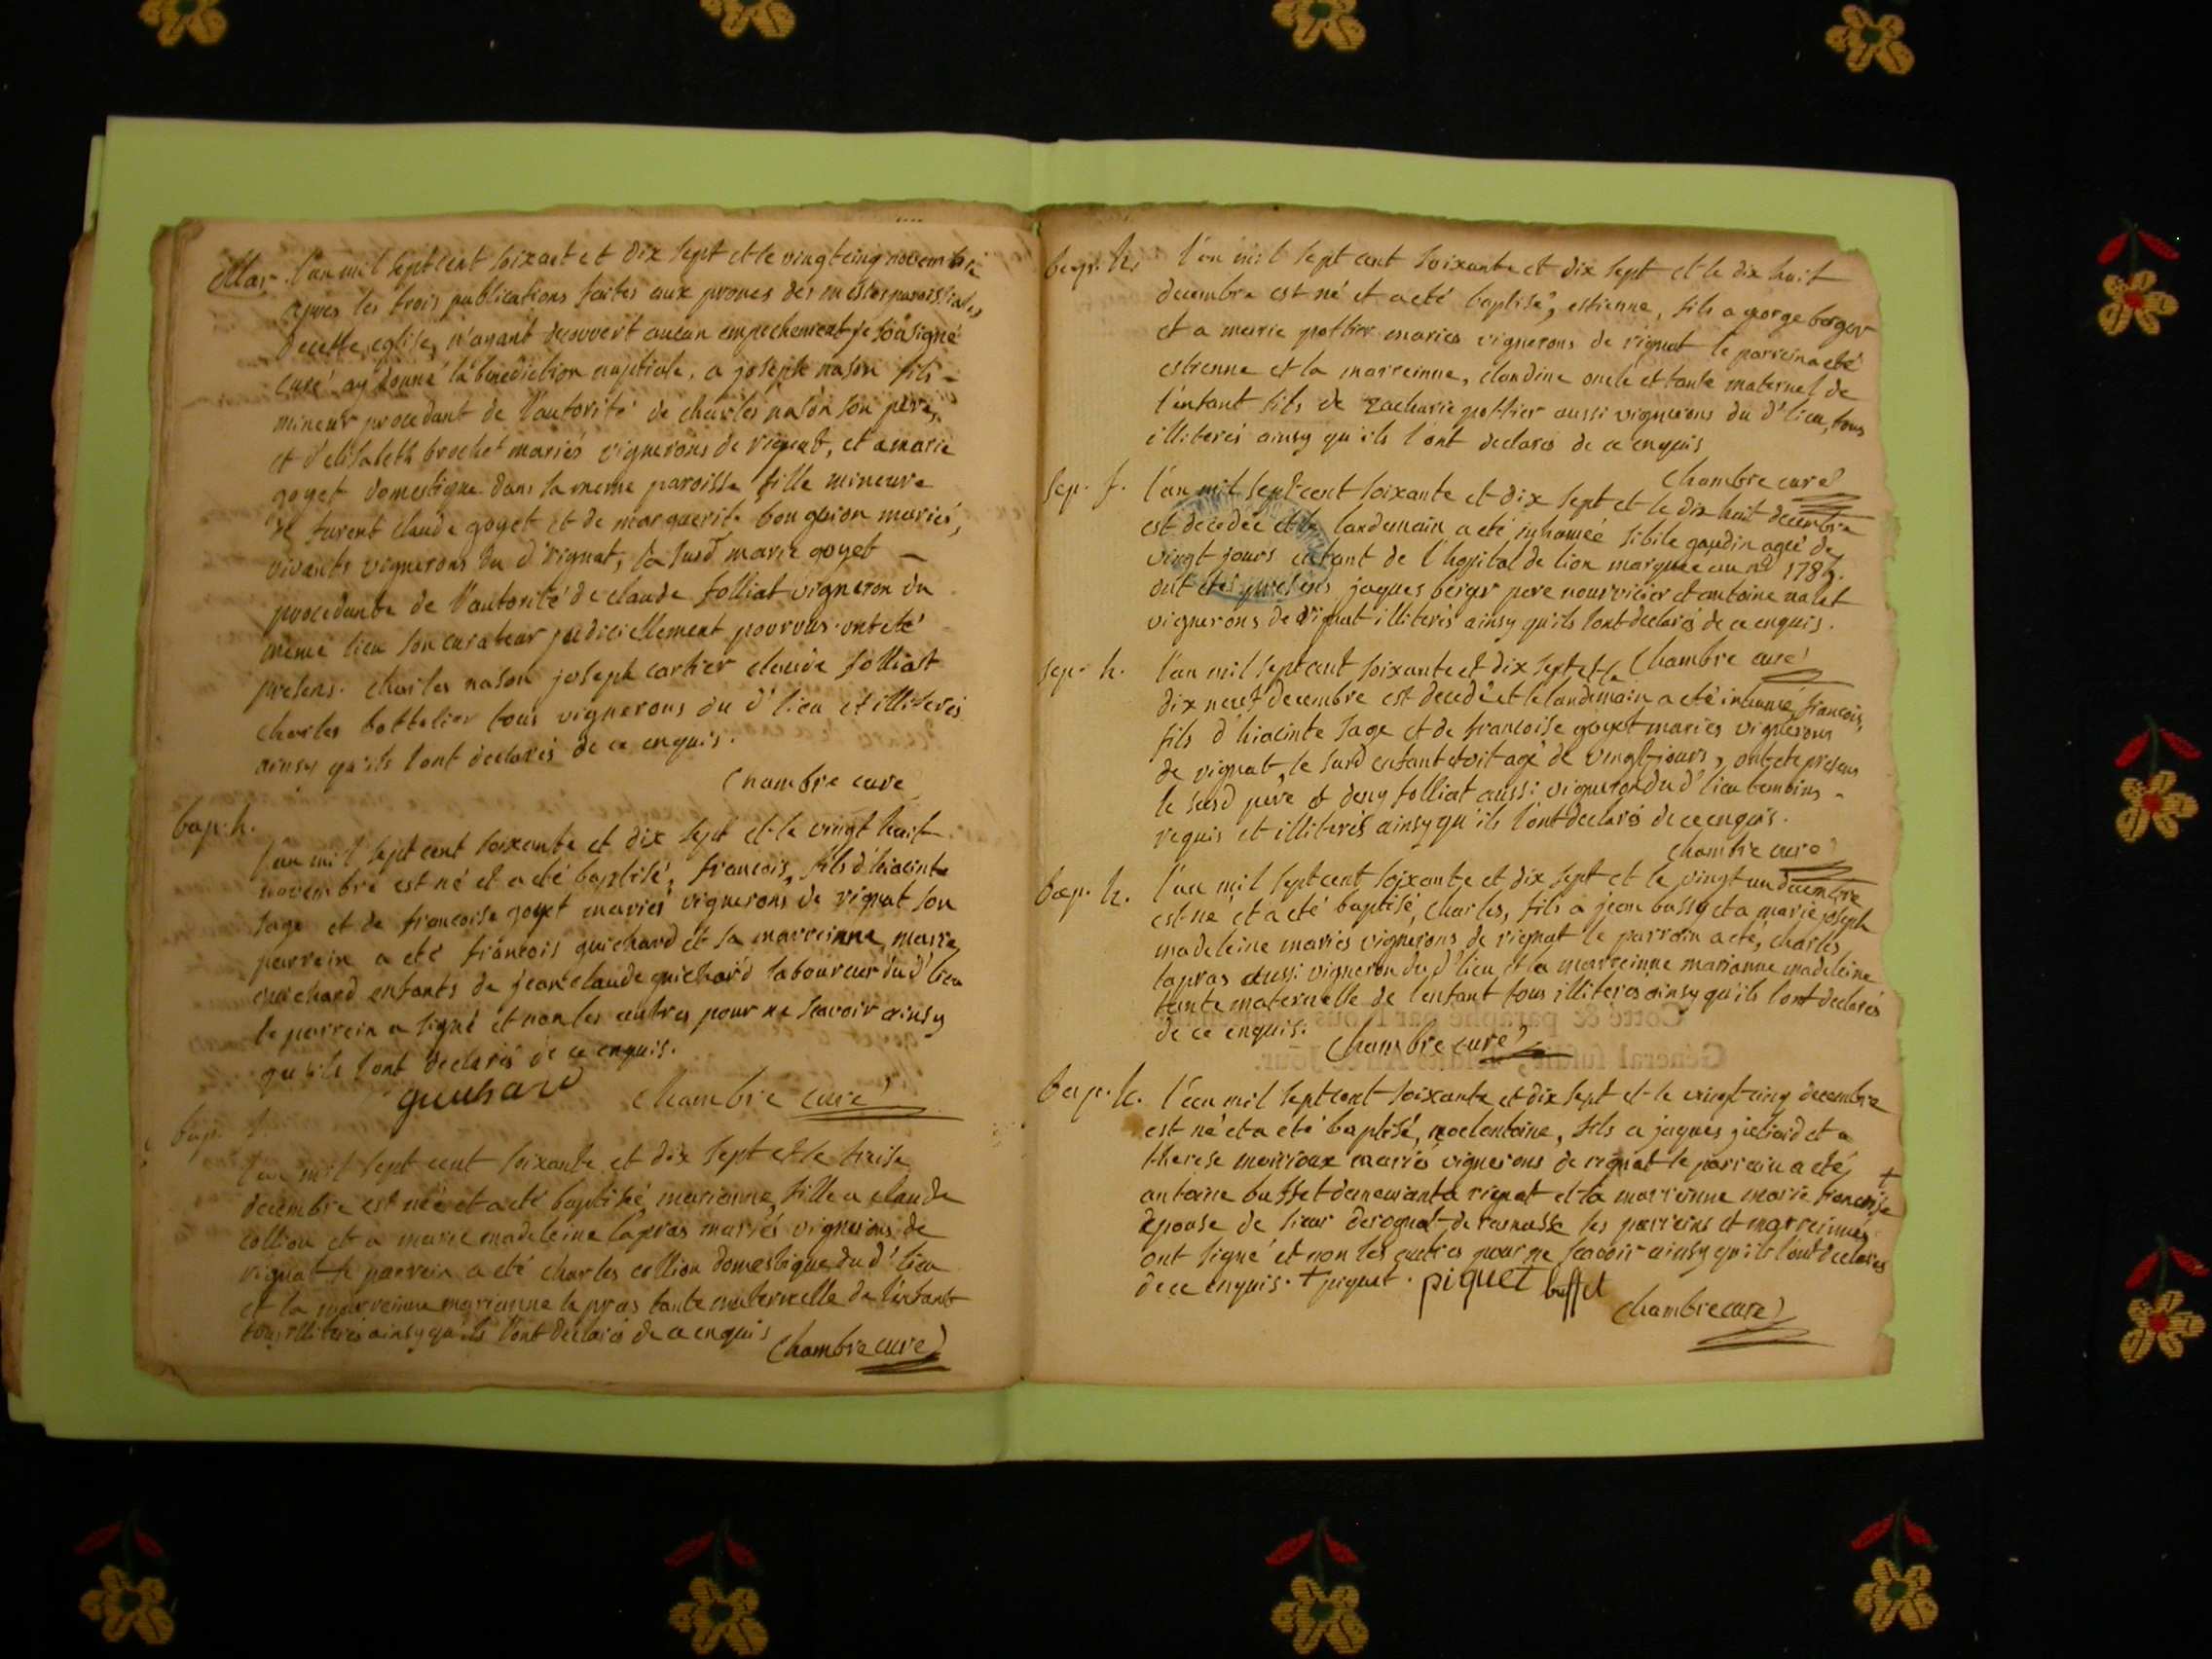 Mar. l'an mil sept cent soixant et dix sept et le vingt cinq novembre
apres les trois publications faites aux prones des messes paroissiales
de cette eglise, n'ayant decouvert aucun empechement je sousigné
curé ay donné la benediction nuptiale, a joseph nason fils -
mineur procedant de l'autorité de charles nason son père,
et d'elisabeth brochet mariés vignerons de rignat, et a marie
goyet domestique dans la meme paroisse fille mineure
de furent claude goyet et de marguerite bonguion mariés,
vivants vignerons du d' rignat, la susd marie goyet -
procedante de l'autorité de claude folliat vigneron du
meme lieu son curateur judiciellement pourvus. ont eté
presens. charles nason joseph cartier claude folliat
charles bottelier tous vignerons du d' lieu et illiterés
ainsy qu'ils l'ont declarés de ce enquis.
Chambre curé
bap. h.
l'an mil sept cent soixante et dix sept et le vingt huit
novembre est né et a eté baptisé, francois, fils d'hiacinte
sage et de francoise goyet mariés vignerons de rignat son
parrein a eté francois guichard et sa marreinne marie
guichard enfants de jean claude guichard laboureur du d' lieu
le parrein a signé et non les autres pour ne scavoir ainsy
qu'ils l'ont declarés de ce enquis.
guichard Chambre curé
bap.
l'an mil sept cent soixante et dix sept et le treise
decembre est née et a eté baptisée, marianne, fille a claude
collion et a marie madeleine lapras mariés vignerons de
rignat le parrein a eté charles collion domestique du d' lieu
et la marreinne marianne lapras tante maternelle de l'enfant
tous illiterés ainsy qu'ils l'ont declarés de ce enquis
Chambre curé
bap. h. l'an mil sept cent soixante et dix sept et le dix huit
decembre est né et a eté baptisé, estienne, fils a george berger
et a marie pottier mariés vignerons de rignat le parrein a eté
estienne et la marreinne, claudine oncle et tante maternel de
l'enfant fils de zacharie pottier aussi vignerons du d' lieu, tous
illiterés ainsy qu'ils l'ont declarés de ce enquis
Chambre curé
sep. f. l'an mil sept cent soixante et dix sept et le dix huit decembre
est decedée et le landemain a eté inhumée sibile gaudin ageé de
vingt jours enfant de l'hopital de lion marquée au no
ont etés presens jaques berger pere nourricier et antoine nalet
vignerons de rignat illiterés ainsy qu'ils l'ont declarés de ce enquis.
Chambre curé
sep. h. l'an mil sept cent soixante et dix sept et le
dix neuf decembre est decedé et le landemain a eté inhumé, francois,
fils d'hiacinte sage et de francoise goyet mariés vignerons
de rignat, le susd enfant etoit agé de vingt jours, ont eté presens
le susd pere et deny folliat aussi vigneron du d' lieu temoins -
requis et illiterés ainsy qu'ils l'ont declarés de ce enquis.
Chambre curé
bap. h. l'an mil sept cent soixante et dix sept et le vingt un decembre
est né et a eté baptisé, charles, fils a jean bussy et a marie joseph
madeleine mariés vignerons de rignat le parrein a eté, charles
lapras aussi vigneron du d' lieu et la marreinne marianne madeleine
tante maternelle de l'enfant tous illiterés ainsy qu'ils l'ont declarés
de ce enquis.
Chambre curé
bap. h. l'an mil sept cent soixante et dix sept et le vingt cinq decembre
est né et a eté baptisé, noel antoine, fils a jaques et a
therese mariés vignerons de rignat le parrein a eté,
antoine buffet demeurant a rignat et la marreinne marie francoise +
epouse de sieur les parreins et marreinnes
ont signé et non les autres pour ne scavoir ainsy qu'ils l'ont declarés
de ce enquis. + piquet. piquet buffet
Chambre curé